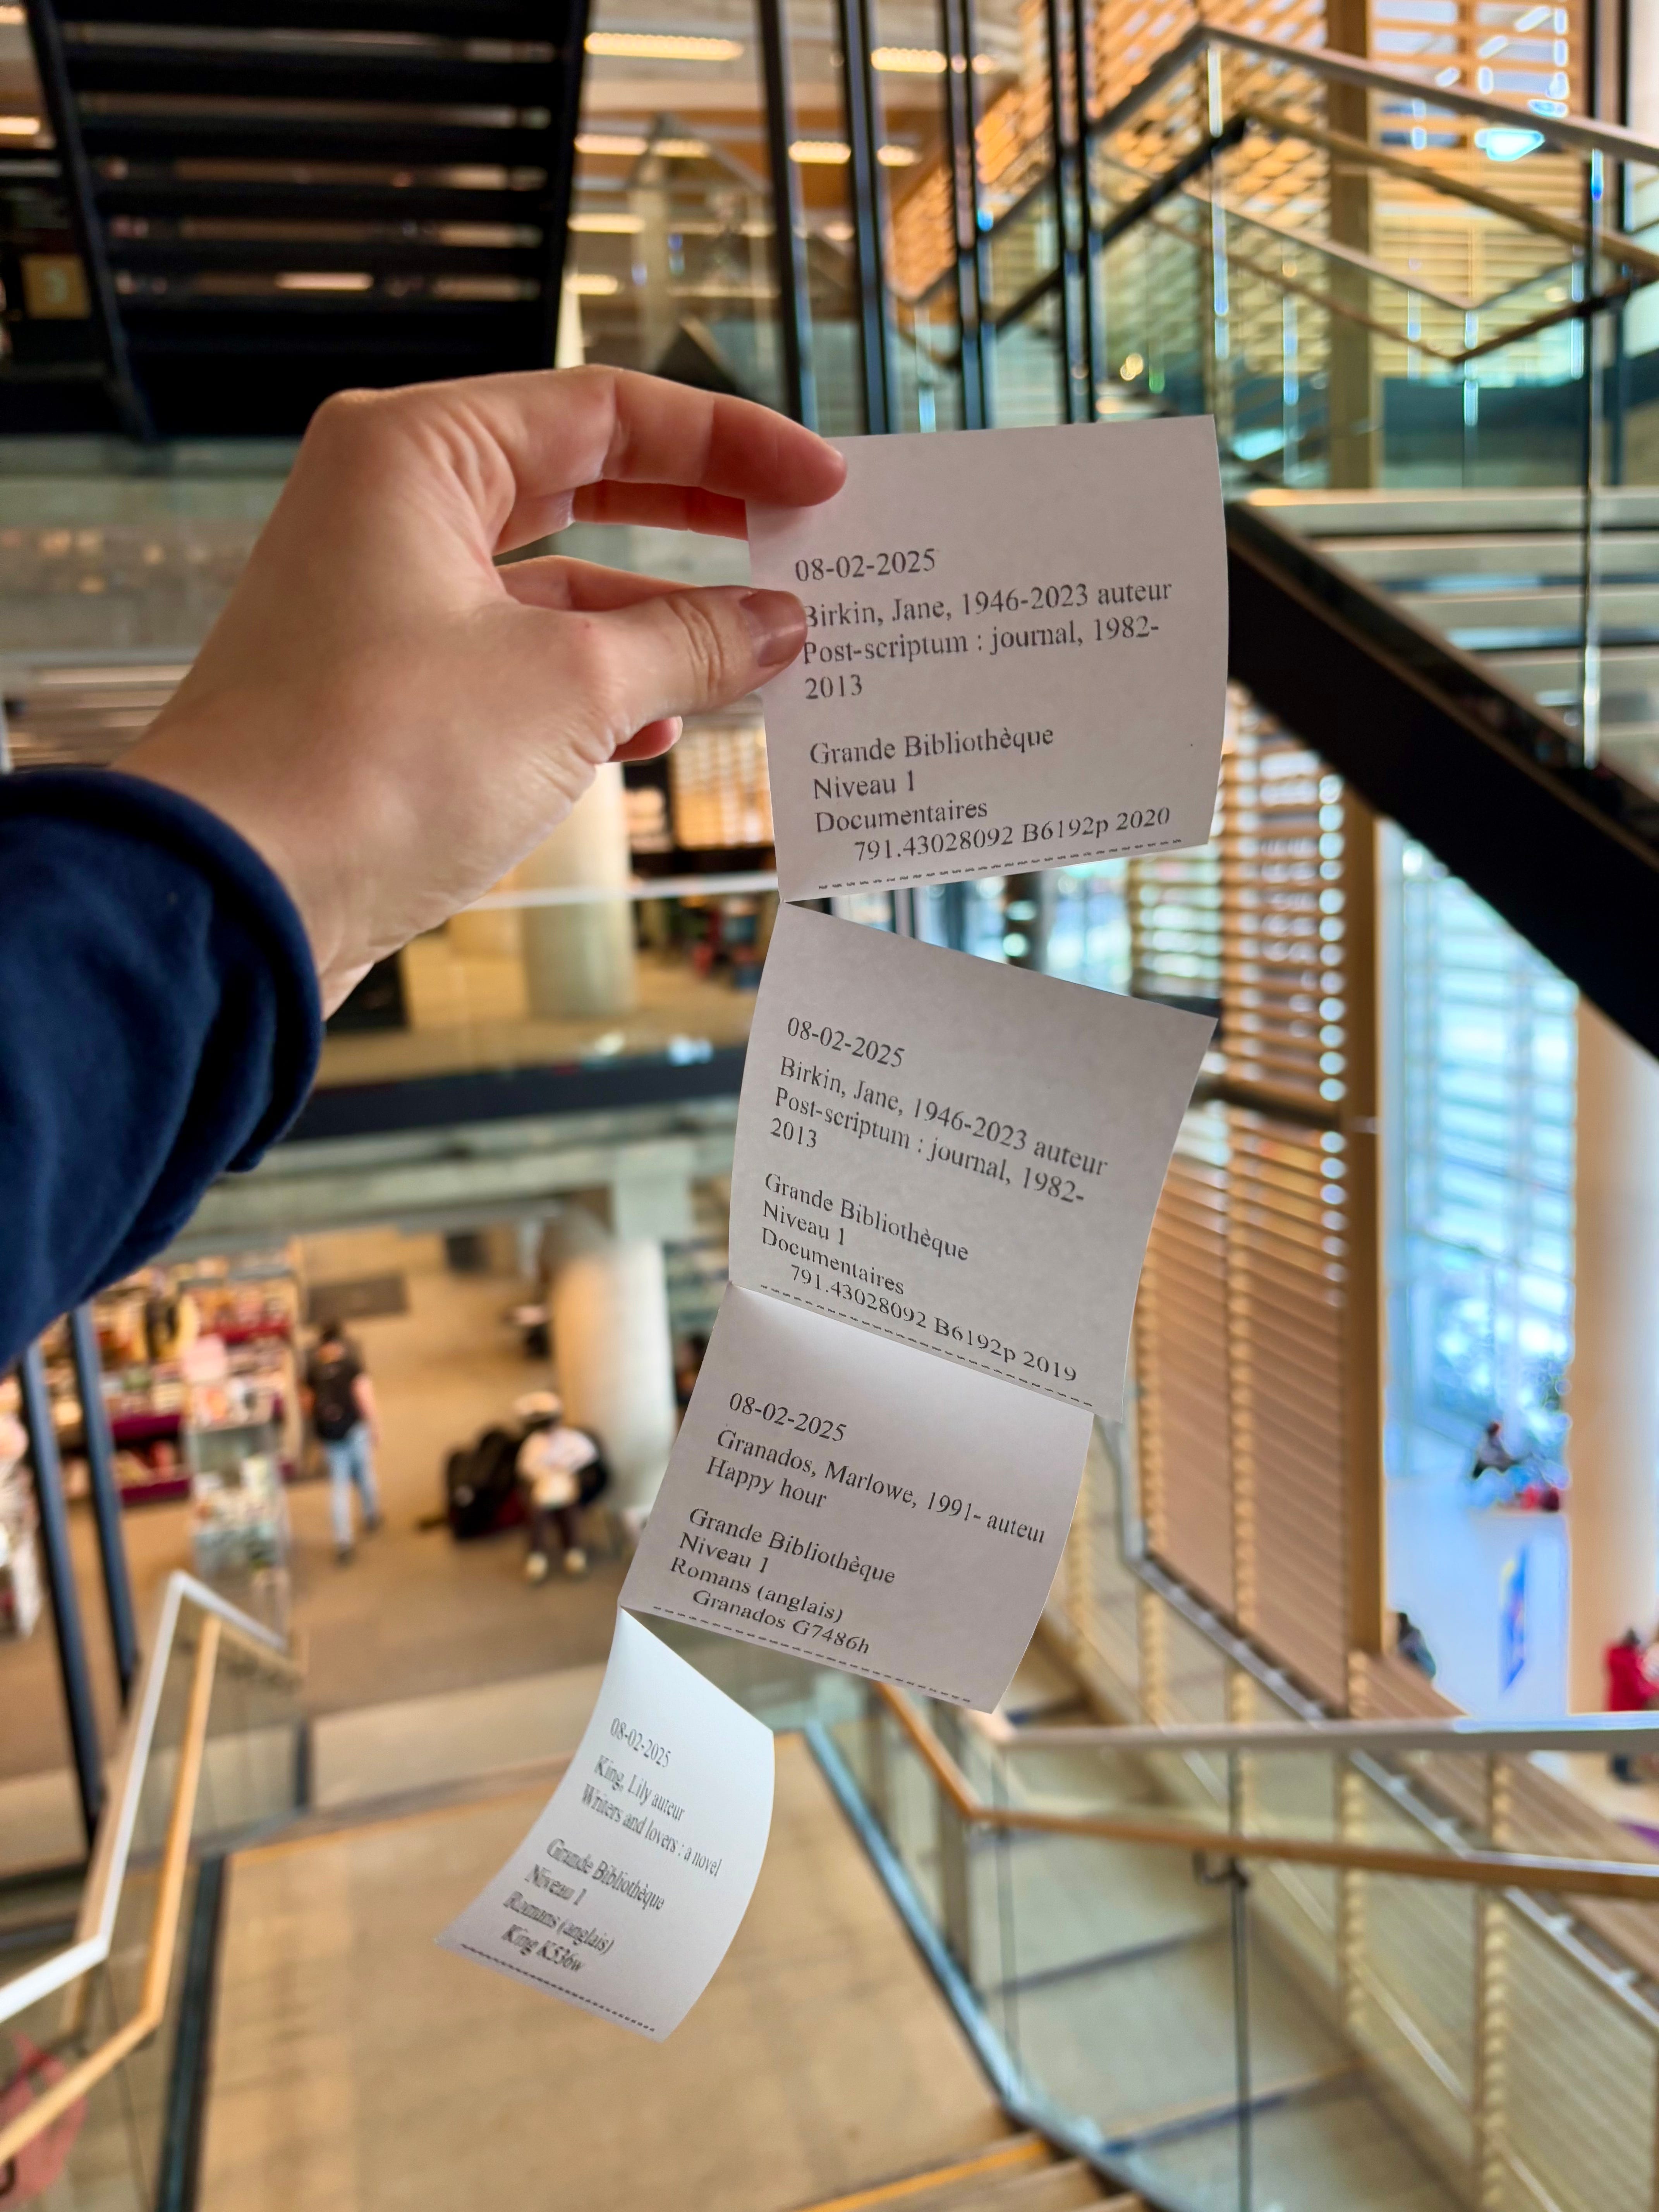 08-02-2025
Birkin, Jane, 1946-2023 auteur
Post-scriptum : journal, 1982-
2013
Grande Bibliothèque
Niveau 1
Documentaires
791.43028092 B6192p 2020
08-02-2025
Birkin, Jane, 1946-2023 auteur
Post-scriptum : journal, 1982-
2013
Grande Bibliothèque
Niveau 1
Documentaires
791.43028092 B6192p 2019
08-02-2025
Granados, Marlowe, 1991- auteur
Happy hour
Grande Bibliothèque
Niveau 1
Romans (anglais)
Granados G7486h
08-02-2025
King, Lily auteur
Writers and lovers : a novel
Grande Bibliothèque
Niveau 1
Romans (anglais)
King K536w